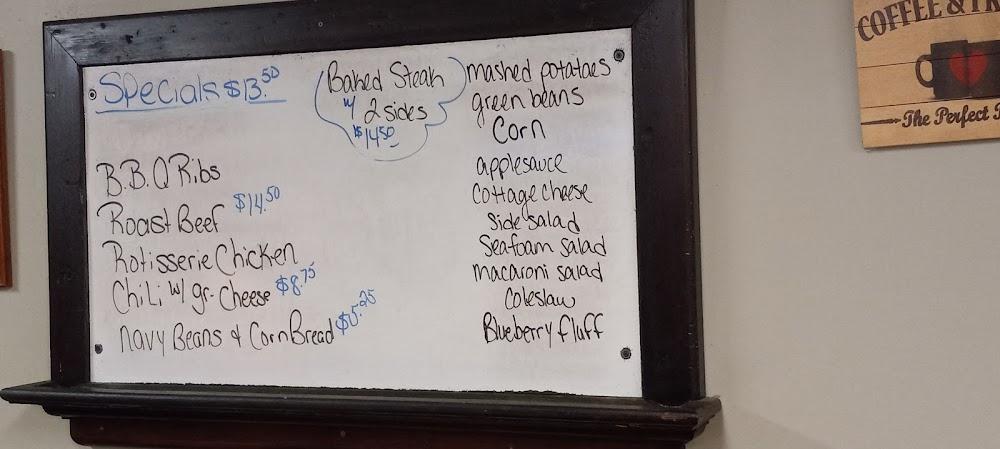 Specials $13.50
B.B.Q Ribs
Roast Beef $14.50
Rotisserie Chicken
Chili w/ gr. Cheese $8.75
Navy Beans & Corn Bread $5.25
Baked Steak
w/ 2 sides
$14.50
mashed potatoes
green beans
Corn
applesauce
Cottage cheese
Side salad
Seafoam salad
macaroni salad
Coleslaw
Blueberry fluff
COFFEE &
The Perfect